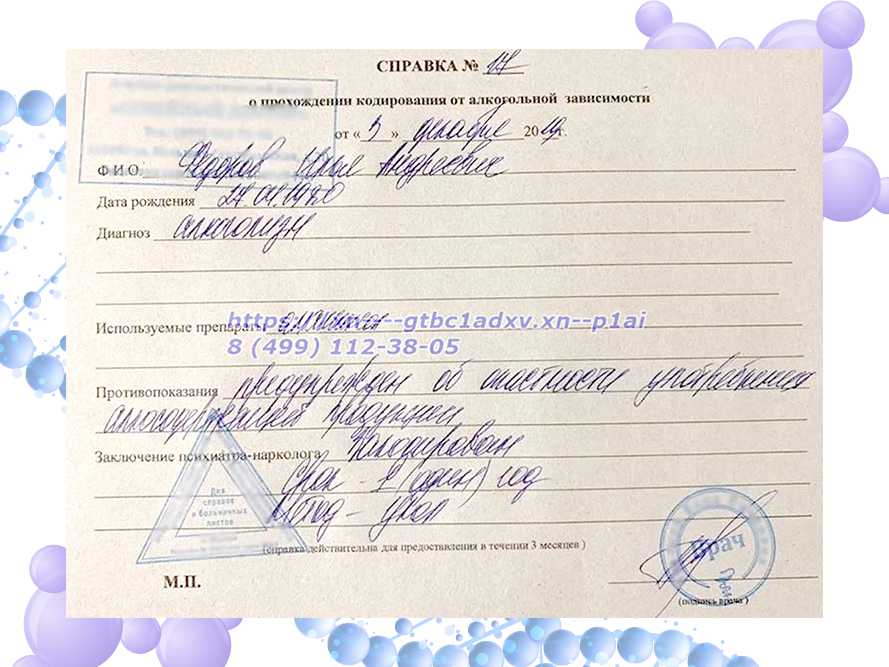 СПРАВКА № 17
о прохождении кодирования от алкогольной зависимости
от « 3 » декабря 2019г.
Ф И О Федоров Илья Андреевич
Дата рождения 27.04.1980
Диагноз алкоголизм
Используемые препараты
https: --gtbc1adxv.xn--p1ai
8 (499) 112-38-05
Противопоказания предупрежден об опасности употребления
алкогодержащей продукции
Заключение психиатра-нарколога Закодирован
Срок - 1 (один) год
Метод - укол
Для
справок
и больничных
листов
(справка действительна для предоставления в течении 3 месяцев )
М.П.
Врач
(подпись врача )